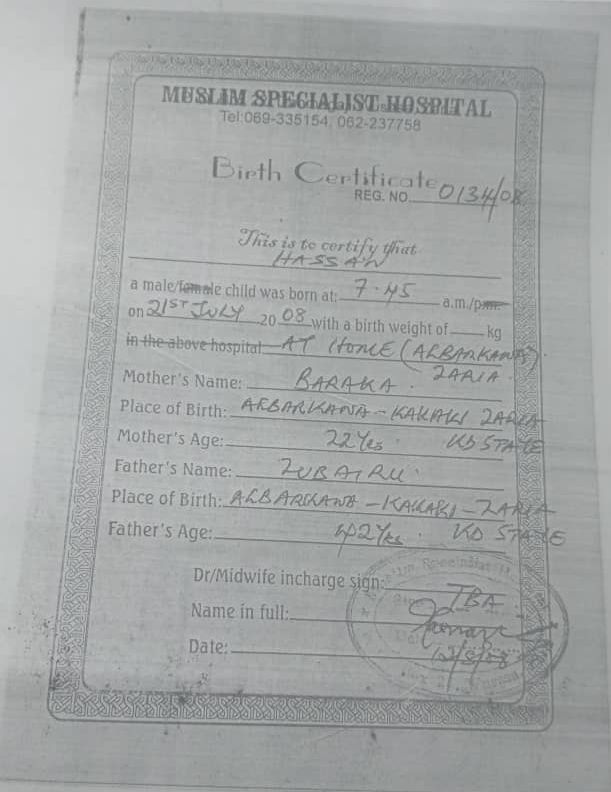 MUSLIM SPECIALIST HOSPITAL
Tel:069-335154, 062-237758
Birth Certificate
REG. NO. 0134/08
This is to certify that
HASSAN
a male/female child was born at: 7.45 a.m./p.m.
on 21ST JULY 2008 with a birth weight of kg
in the above hospital AT HOME (ALBARKAWA).
ZARIA.
Mother's Name: BARAKA.
Place of Birth: ALBARKAWA - KAKAKI ZARIA
Mother's Age: 22Yrs. KD STATE
Father's Name: ZUBAIRU.
Place of Birth: ALBARKAWA - KAKAKI - ZARIA
Father's Age: 42Yrs. KD STATE
Dr/Midwife incharge sign: TBA
Name in full:
Date: